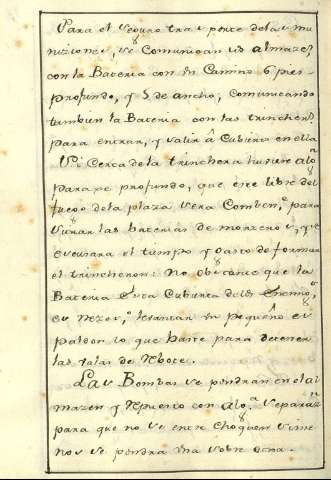 Para el seguro transporte de las mu
niziones, se Comunican los almazes,
con la Bateria con un Camino 6 pies
profundo, y 5 de ancho, Comunicando
tambien la Bateria con las trincheras
para entrar, y salir à Cubierto en ella
Si Cerca de la trinchera hubiere alg.n
paraxe profundo, que este libre del
fuego de la plaza sera Comben.te para
situar las baterias de morteros, que
escusara el tiempo y gasto de formar
el trincheron: No obstante que la
Bateria esta Cubierta del Enemigo
es Nezes.o lebantar un pequeño es
paldon lo que baste para detener
las Valas de Rebote.
Las Bombas se pondran en el al
mazen y Repuesto con alg.a separaz.n
para que no se entre choquen, y me
nos se pondra una sobre otra.